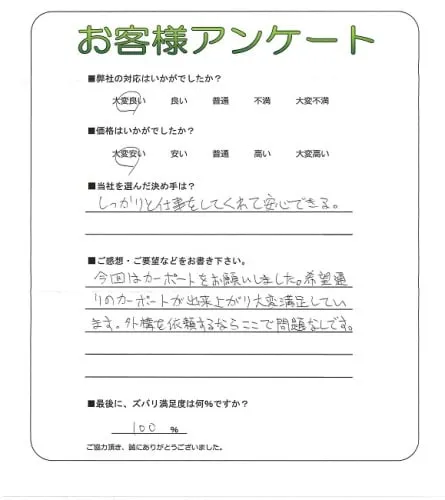 お客様アンケート
■弊社の対応はいかがでしたか？
大変良い 良い 普通 不満 大変不満
■価格はいかがでしたか？
大変安い 安い 普通 高い 大変高い
■当社を選んだ決め手は？
しっかりと仕事をしてくれて安心できる。
■ご感想・ご要望などをお書き下さい。
今回はカーポートをお願いしました。希望通
りのカーポートが出来上がり大変満足してい
ます。外構を依頼するならここで問題なしです。
■最後に、ズバリ満足度は何％ですか？
100 %
ご協力頂き、誠にありがとうございました。